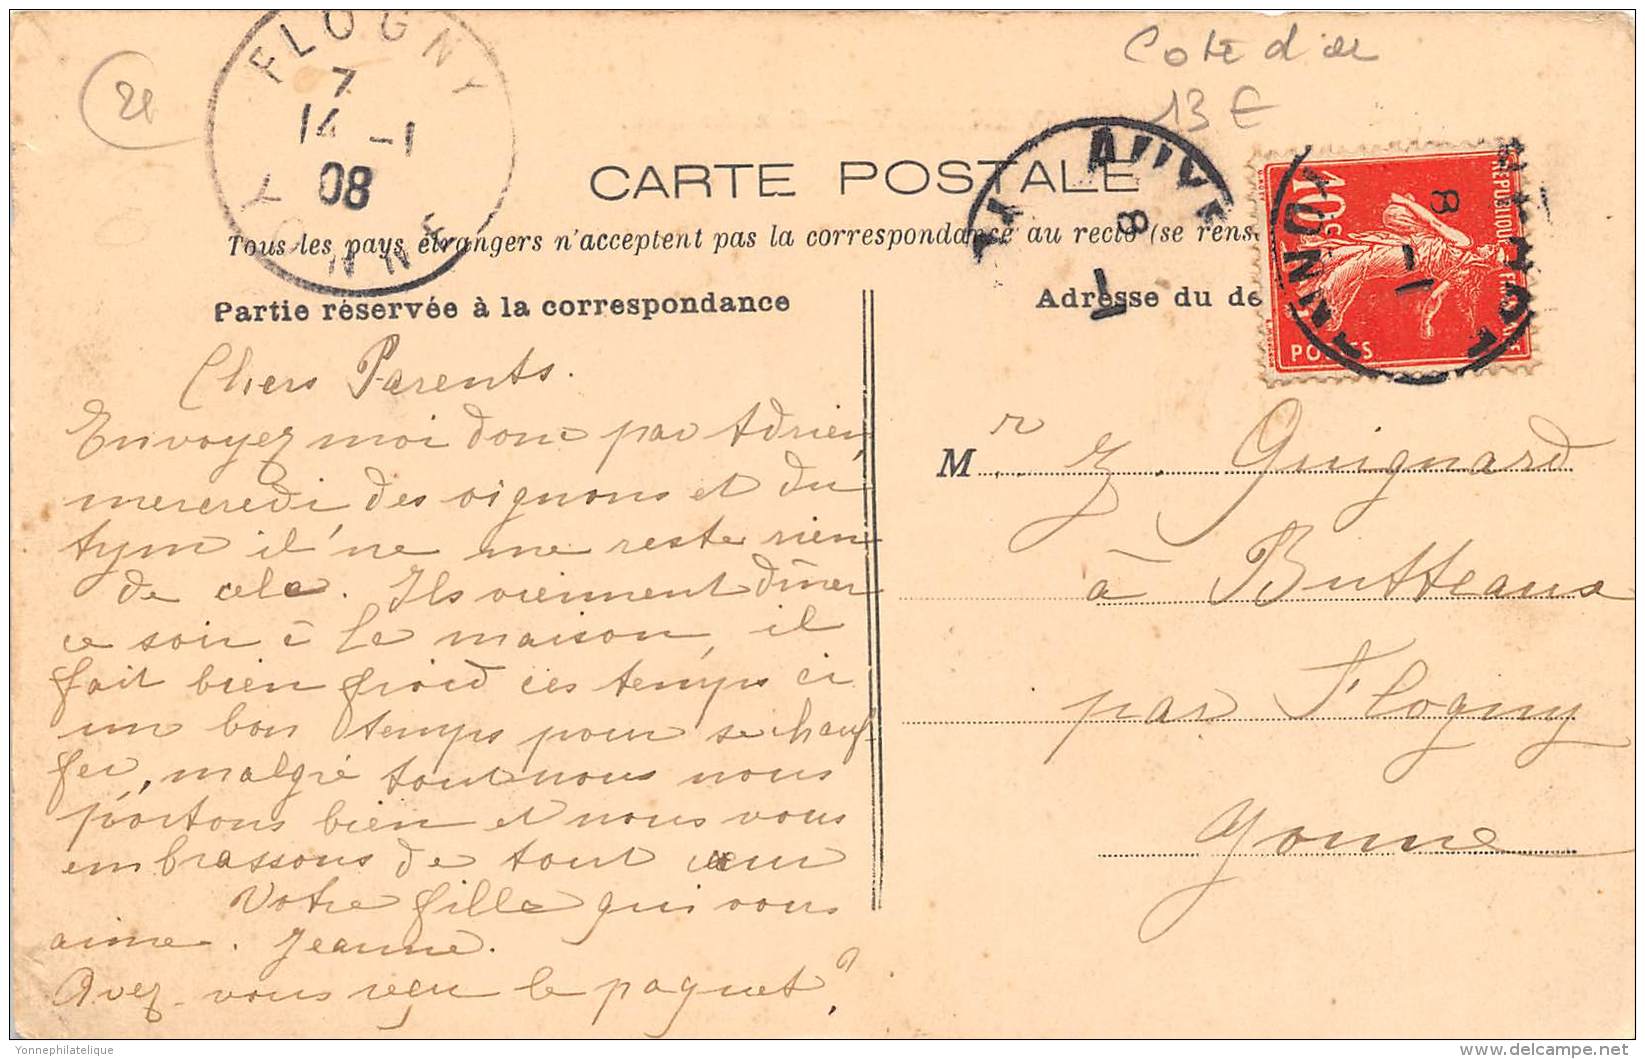 Cote d'or
13 €
21
FLOGNY
7
14 -1
08
YONNE
8
1
8
-1
10c
REPUBLIQUE FRANÇAISE
POSTES
CARTE POSTALE
Tous les pays étrangers n'acceptent pas la correspondance au recto (se rens
Partie réservée à la correspondance
Adresse du de
Chers Parents.
Envoyez moi donc par Adrien,
mercredi des oignons et du
tym il ne me reste rien
de cela. Ils viennent dîner
ce soir à la maison, il
fait bien froid ces temps ci
un bon temps pour se chauf-
fer, malgré tout nous nous
portons bien et nous vous
embrassons de tout cœur
Votre fille qui vous
aime. Jeanne.
Avez-vous reçu le paquet?
Mr. Z. Guignard
à Butteaux
par Flogny
Yonne
Yonnephilatelique
www.delcampe.net